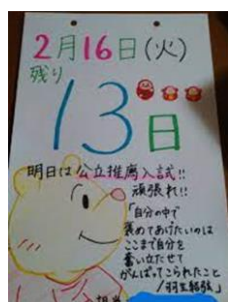 2月16日(火)
残り
13日
明日は公立推薦入試!!
頑張れ!!
「自分の中で
褒めてあげたいのは
ここまで自分を
奮い立たせて
がんばってこられたこと
/羽生結弦」